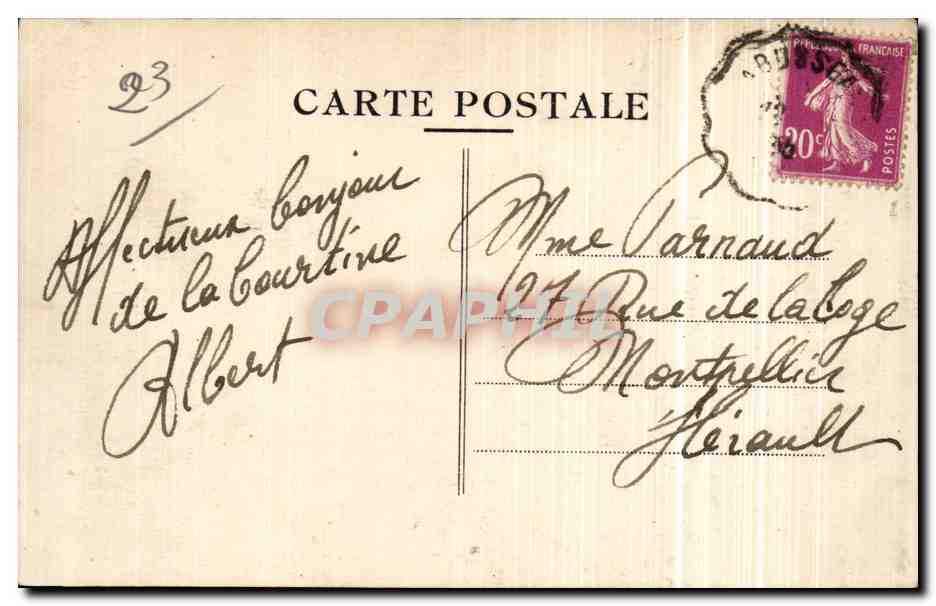 23
CARTE POSTALE
RÉPUBLIQUE FRANÇAISE
20c
POSTES
Affectueux bonjour
de la Courtine
Albert
Mme Parnaud
27 Rue de la Loge
Montpellier
Hérault
CPAPHIL